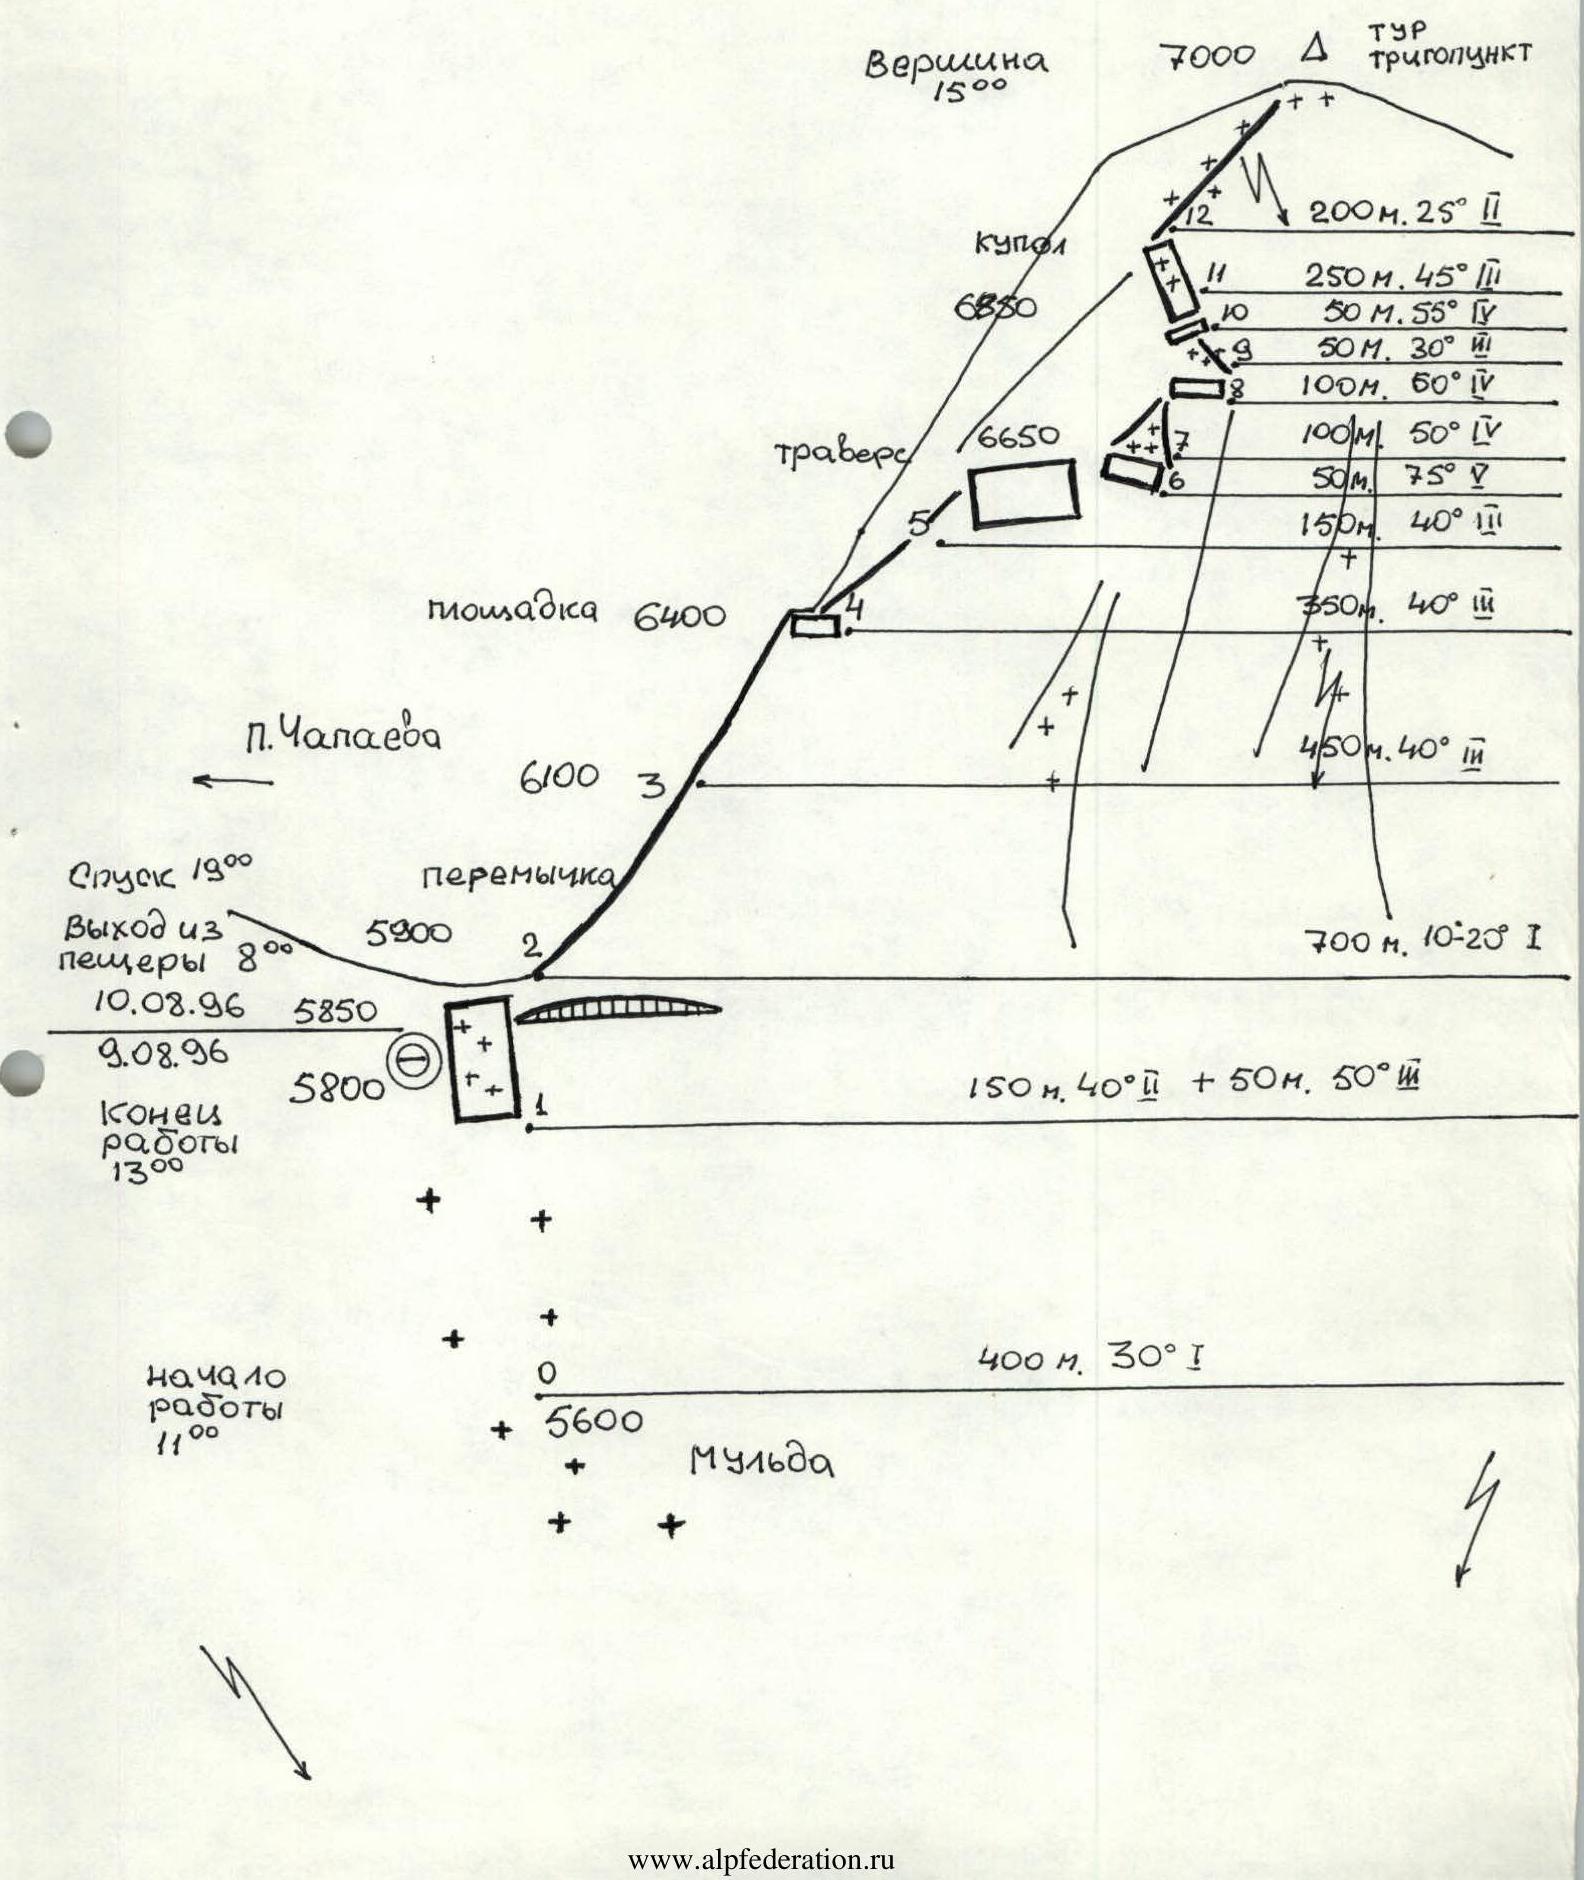 ТУР
Вершина 7000 Δ тригопункт
15⁰⁰
12 200м. 25° II
купол
11 250м. 45° III
6850 10 50м. 55° IV
9 50м. 30° III
8 100м. 60° IV
траверс 6650 7 100м. 50° IV
6 50м. 75° V
5 150м. 40° III
площадка 6400 4 350м. 40° III
п.Чапаева
6100 3 450м. 40° III
Спуск 19⁰⁰ перемычка
Выход из 5900 2 700м. 10°-20° I
пещеры 8⁰⁰
10.08.96 5850
9.08.96
5800 150м. 40° II + 50м. 50° III
Конец 1
работы
13⁰⁰
0 400м. 30° I
начало
работы 5600
11⁰⁰
Мульда
www.alpfederation.ru